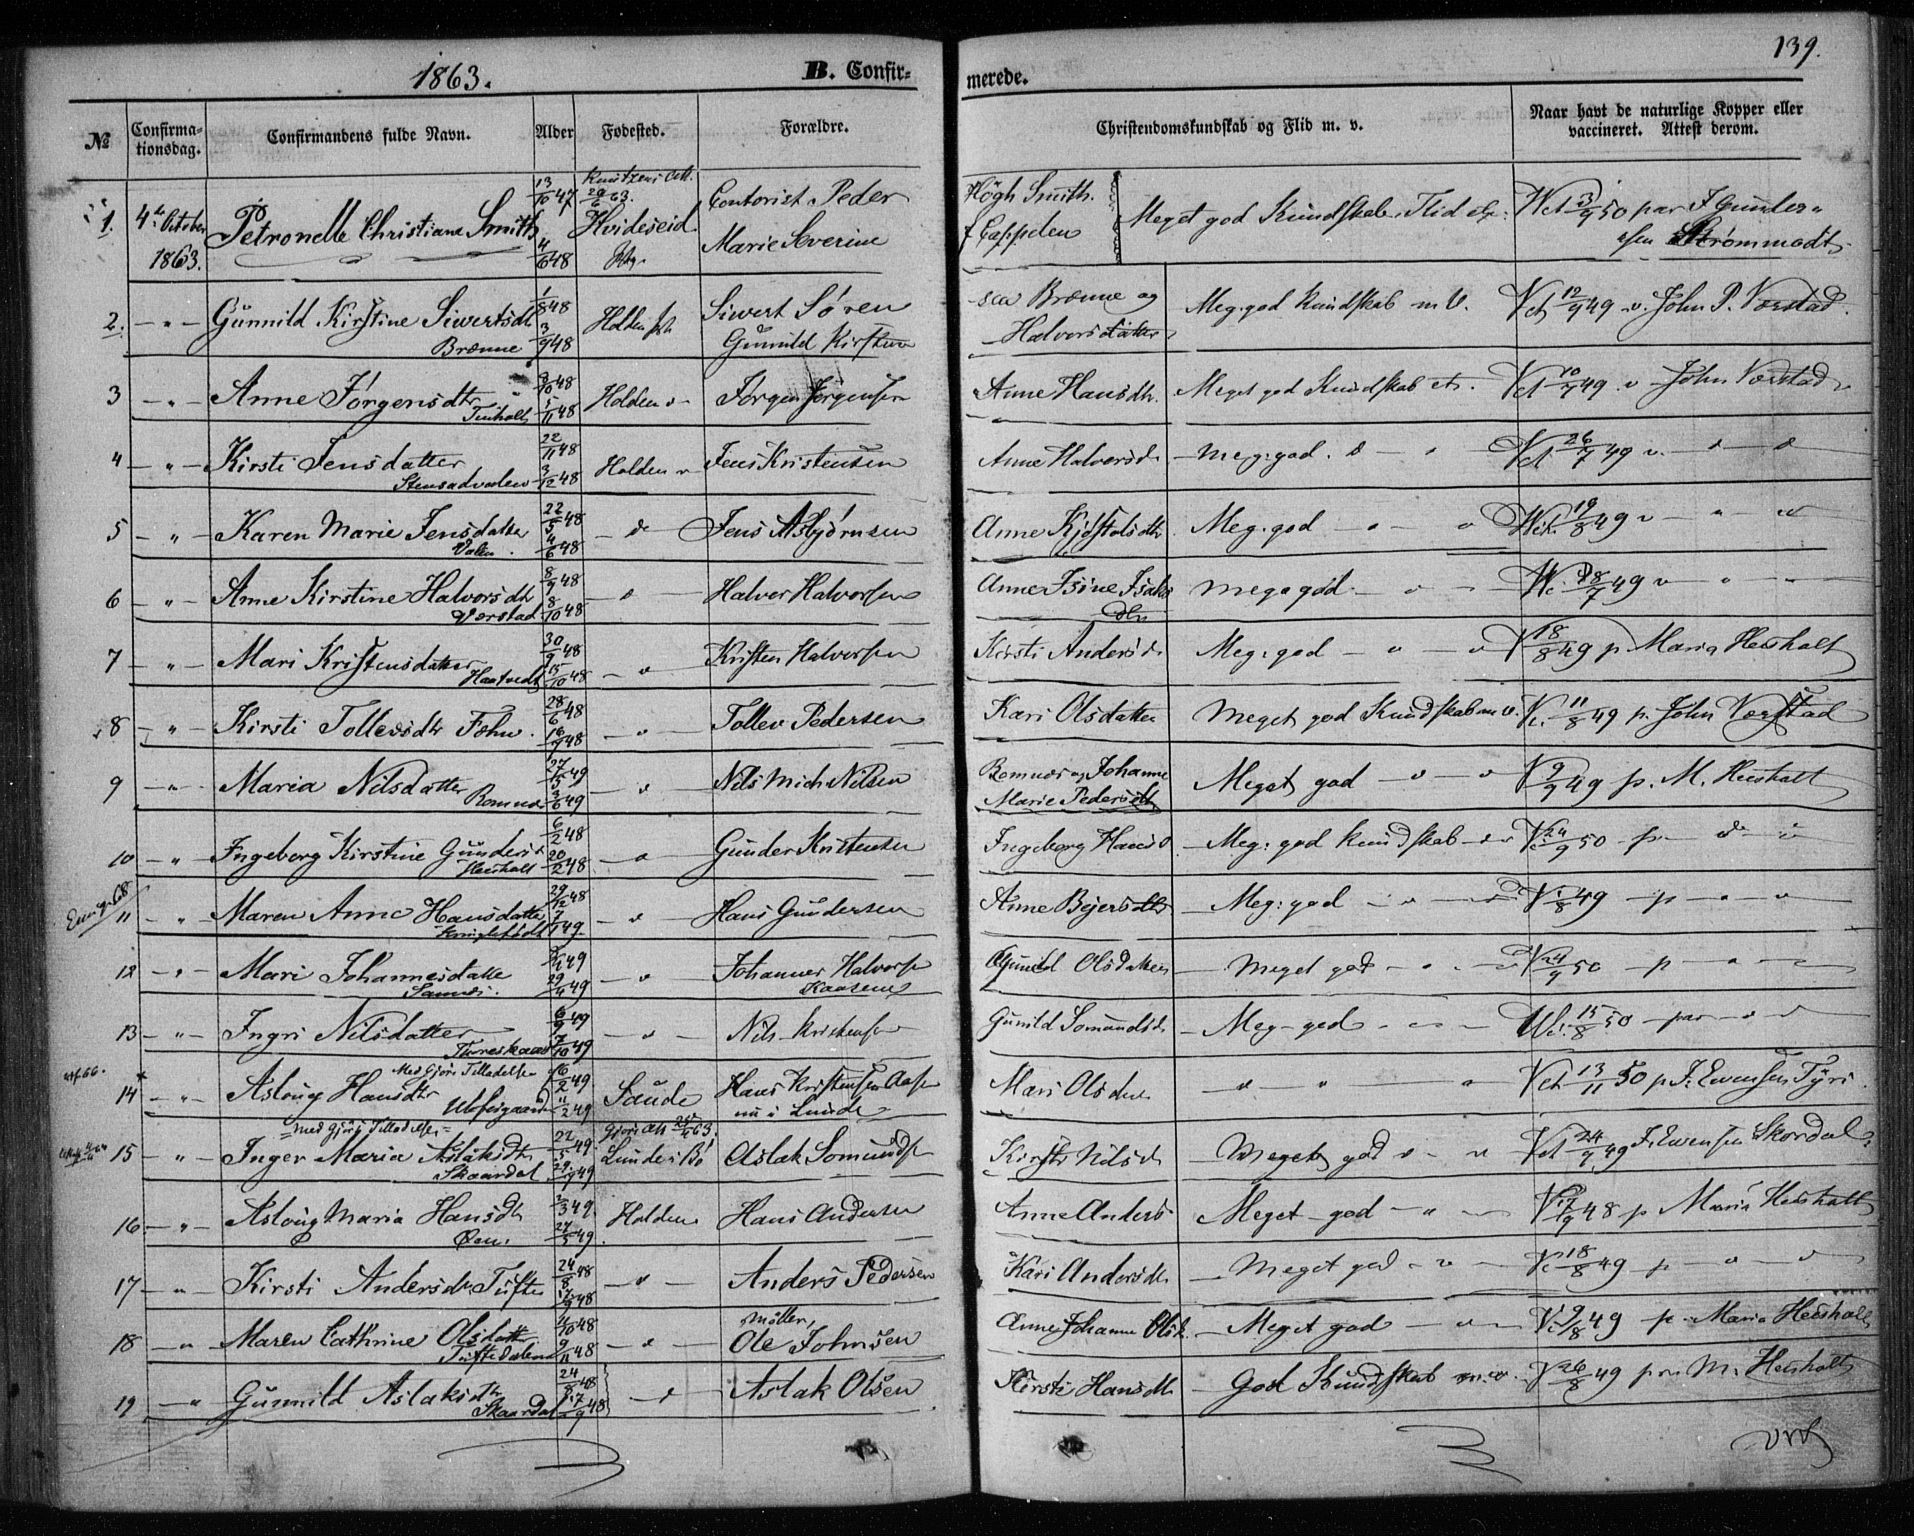 1863.
B. Confir-
merede.
139.
№
Confirma-
tionsdag.
Confirmandens fulde Navn.
Alder
Fødested.
Forældre.
Christendomskundskab og Flid m. v.
Naar havt de naturlige Kopper eller
vaccineret. Attest derom.
1. 4de October 1863. Petronelle Christiane Smith 13/10 47 4/6 48 Hvideseid Contorist Peder Høgh Smith. Marie Severine f Cappelen Meget god Kundskab Flid etc. Vct 3/9 50 par J Gunder-
2. - " - Gunnild Kirstine Siwertsdtr Brænne 1/8 48 3/9 48 Holden Siwert Søren Brænne og Gunnild Kirstine Halvorsdatter Meg: god Kundskab m. V. Vct 12/9 49 v. John P. Værstad.
3 - " - Anne Jørgensdtr 5/11 48 Holden Jørgen Jørgensen Anne Hansdtr. Meget god Kundskab etc. Vct 10/7 49 v John Værstad
4 - " - Kirsti Jensdatter 22/11 48 3/12 48 Holden Jens Kristensen Anne Halvorsd. Meg: god. Vct 26/7 49 v.
5 - " - Karen Marie Jensdatter Valen. 22/5 48 4/6 48 Jens Asbjørnsen Anne Kjøstolsdtr Meg: god 19/8 49 v
6 - " - Anne Kirstine Halvorsdtr Værstad 8/9 48 8/10 48 Halvor Halvorsen Anne Isine Isaks dtr Meget god 18/7 49 v
7 - " - Mari Kristensdatter Haatvedt 30/9 48 15/10 48 Kristen Halvorsen Kirsti Andersd. Meg: god 18/8 49 p. Maria Heishalt
8 - " - Kirsti Tollevsdtr Fæhn. 28/6 48 16/7 48 Tollev Pedersen Kari Olsdatter Meget god Kundskab m V. Vc. 11/8 49 p. John Værstad
9 - " - Maria Nilsdatter Romnæs 27/5 49 3/6 49 Nils Mich Nilsen Romnæs og Johanne Marie Pedersdtr Meget god 9/9 49 p. M. Heishalt
10 - " - Ingeborg Kirstine Gundersd. Heishalt 6/2 48 20/2 48 Gunder Kristensen Ingeborg Hansd Meg: god Kundskab 24/9 50 p.
11 - " - Maren Anne Hansdatter 29/12 48 7/1 49. Hans Gundersen Anne Bejersdtr Meg: god 49 p
12 - " - Mari Johannesdatter 49 29/4 49 Johannes Halvorsen Gunild Olsdatter Meget god 24/9 50 p
13 - " - Ingri Nilsdatter 6/9 49 7/10 49 Nils Kristensen Gunild Somundsd. Meg- god 15/8 50 par
14 - " - Med Gjørs Tilladelse Aslaug Hansdtr 49 11/2 49 Saude Hans Kristensen nu i Lunde Mari Olsdtr Vct 13/11 50 p J. Ewensen Tyri
15 - " - =Med Gjörs Tilladelse= Inger Maria Aslaksdtr Skaardal 22/5 49 49 Lunde i Bø Aslak Somundsen Kirsti Nilsd. Meget god Vct 24/9 49 J. Ewensen Skordal
16 - " - Aslaug Maria Hansdtr Øen. 3/3 49. 27/5 49. Holden Hans Andersen Anne Anders Meget god 17/9 48 p Maria Heishalt
17 - " - Kirsti Andersdtr Tufte 24/8 48 17/9 48 Anders Pedersen Kari Andersdtr Meget god 18/8 49 p
18 - " - Maren Cathrine Olsdatter Tuftedalen 4/10 48 9/11 48 Møller Ole Johnsen Anne Johanne Olsd. Meget god 9/8 49 p Maria Heishalt
19 - " - Gunnild Aslaksdtr Skaardal 24/8 48 17/9 48 Aslak Olsen Kirsti Hansdtr God Kundskab m.v. 26/8 49 p M. Heishalt